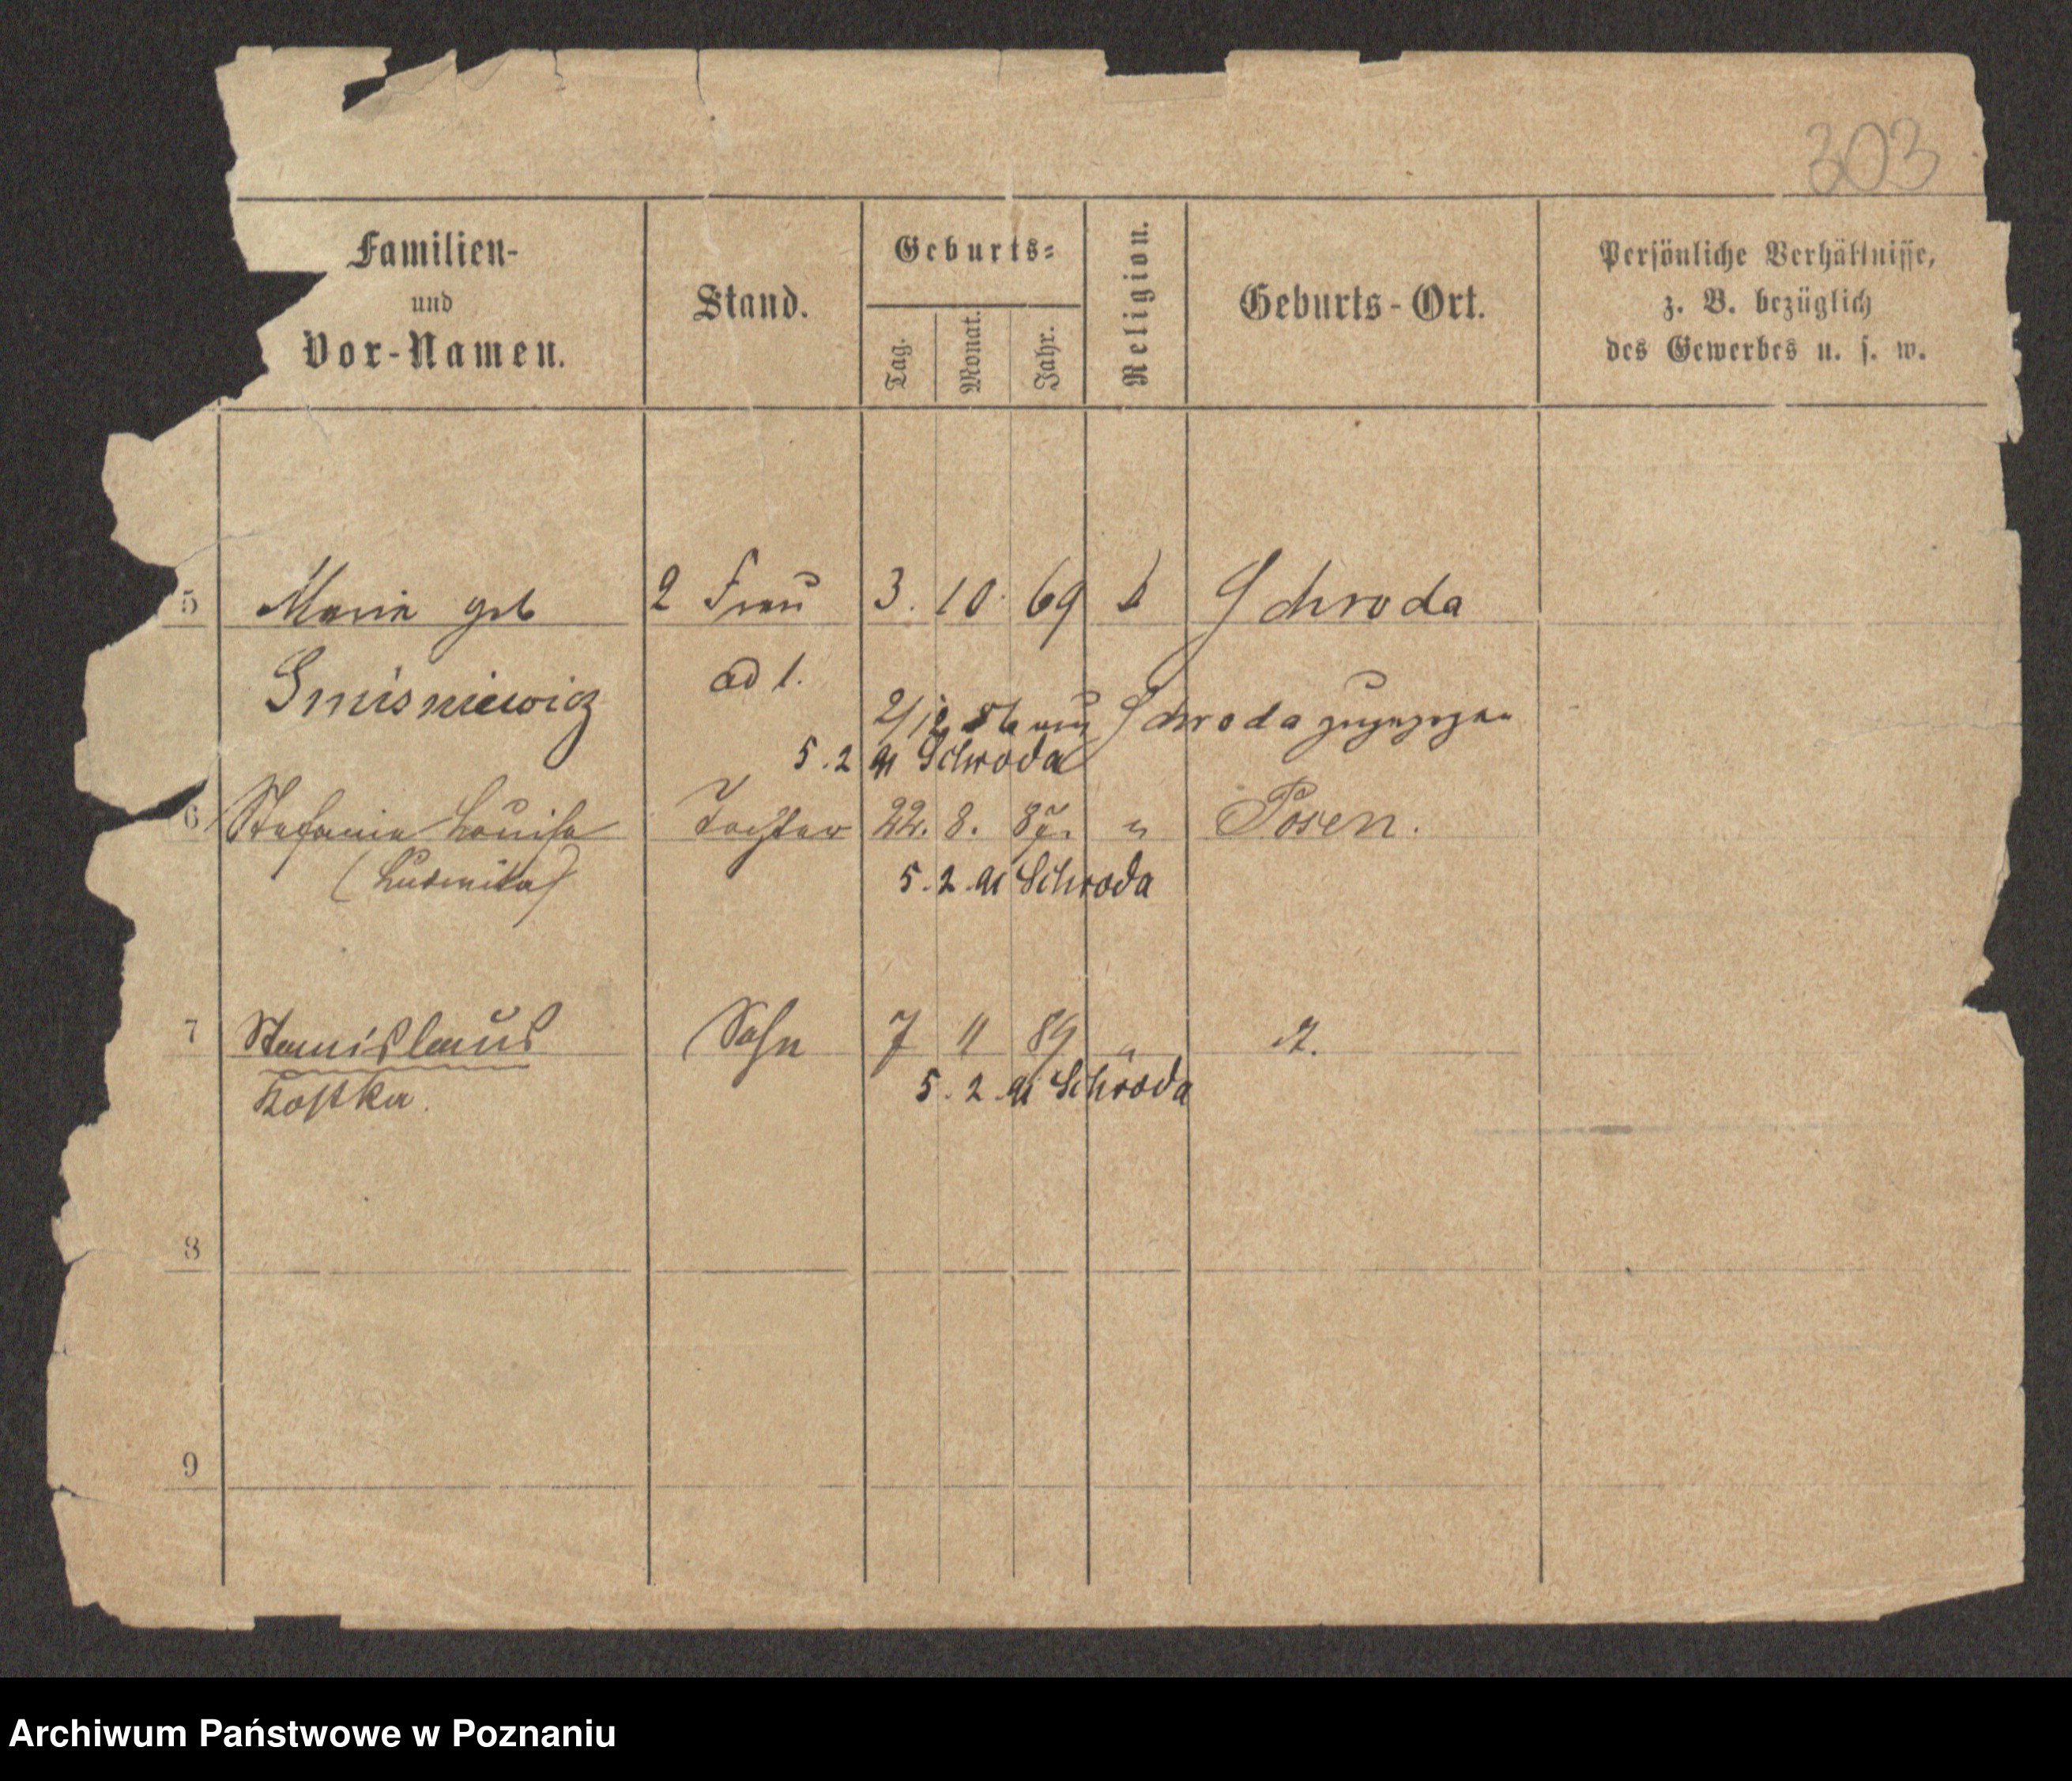 303
Familien-
und
Vor-Namen.
Stand.
Geburts-
Tag.
Monat.
Jahr.
Religion.
Geburts-Ort.
Persönliche Verhältnisse,
z. B. bezüglich
des Gewerbes u. s. w.
5 Marie geb 2 Frau 3. 10. 69 k Schroda
Smisniewicz ad 1.
2/12 86 aus Schroda zugezogen
5. 2 91 Schroda
6 Stefanie Louise Tochter 22. 8. 87. " Posen.
(Ludwika)
5. 2. 91 Schroda
7 Stanislaus Sohn 7 11 89 "
5. 2. 91 Schroda
Kostka.
8
9
Archiwum Państwowe w Poznaniu